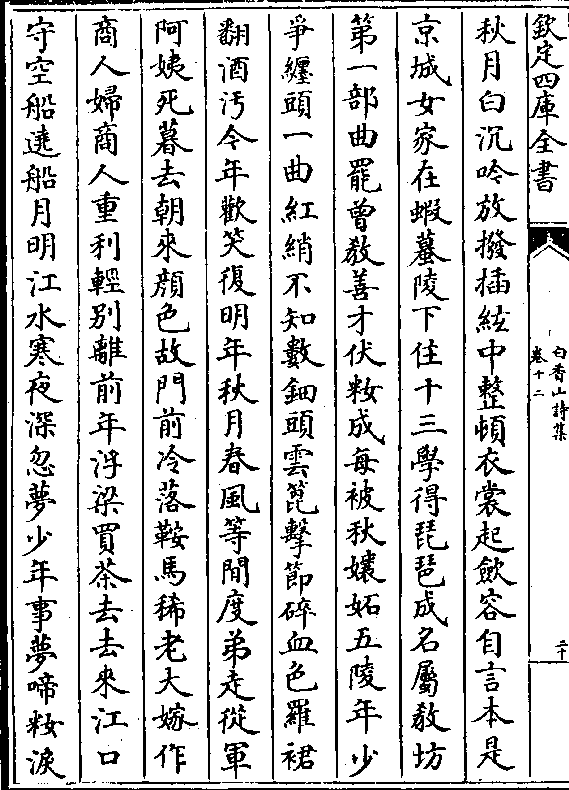 欽定四庫全書
白香山詩集
卷十二
二十
秋月白沉吟放撥插絃中整頓衣裳起斂容自言本是
京城女家在蝦蟇陵下住十三學得琵琶成名屬敎坊
第一部曲罷曾敎善才伏粧成每被秋孃妬五陵年少
爭纏頭一曲紅綃不知數鈿頭雲篦擊節碎血色羅裙
翻酒汚今年歡笑復明年秋月春風等閒度弟走從軍
阿姨死暮去朝來顔色故門前冷落鞍馬稀老大嫁作
商人婦商人重利輕別離前年浮梁買茶去去來江口
守空船遶船月明江水寒夜深忽夢少年事夢啼粧淚